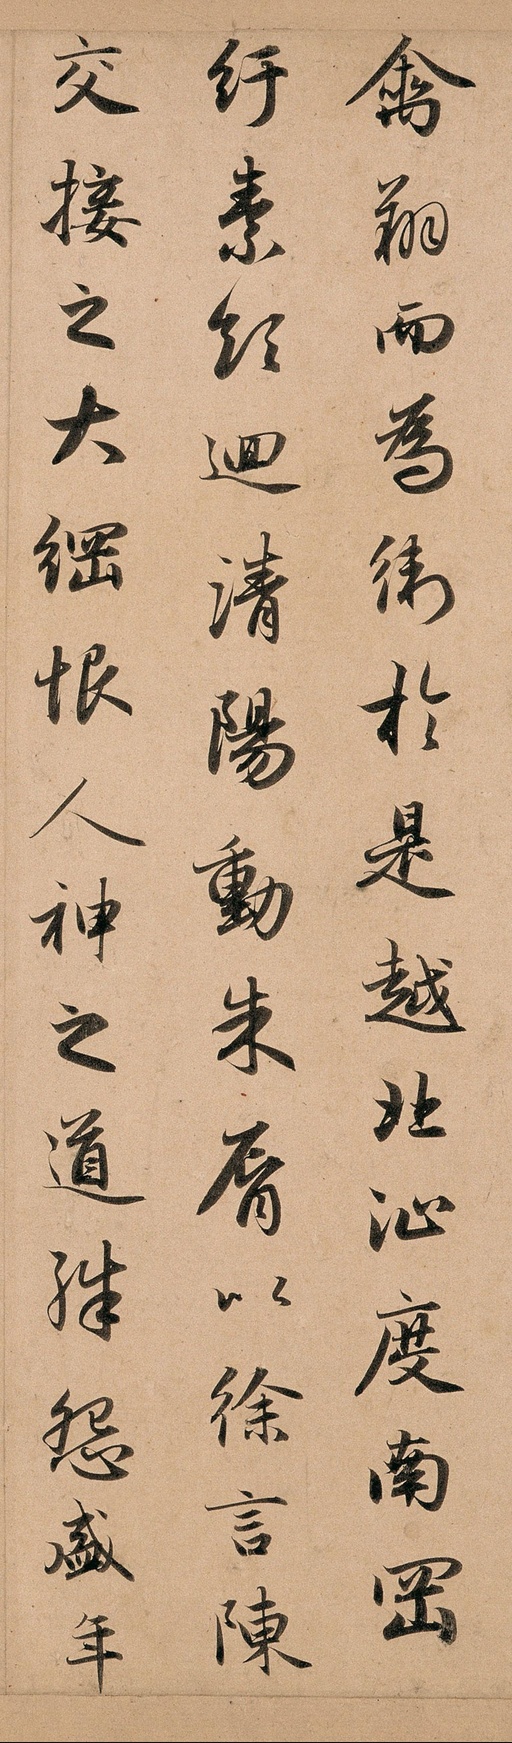 禽翔而為衛於是越北沚度南罡
紆素領迴清陽動朱脣以徐言陳
交接之大綱恨人神之道殊怨盛年